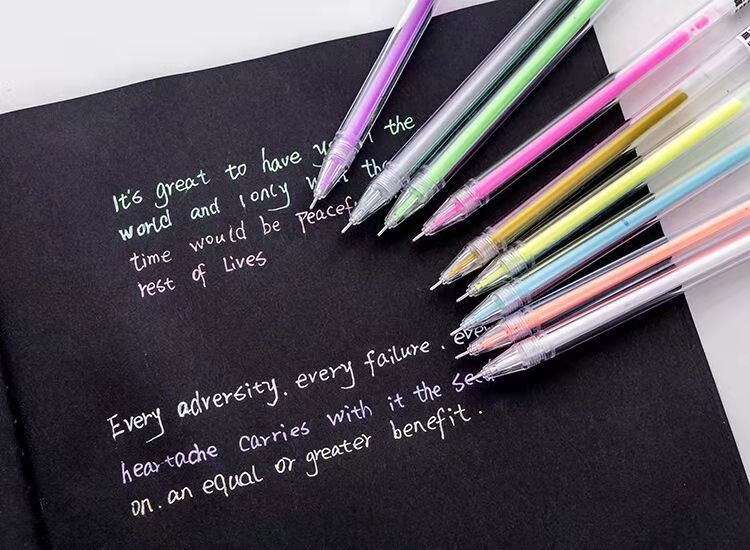 It's great to have the
world and I only the
time would be peacef
rest of Lives
Every adversity. every failure. eve
heartache carries with it the see
on. an equal or greater benefit.